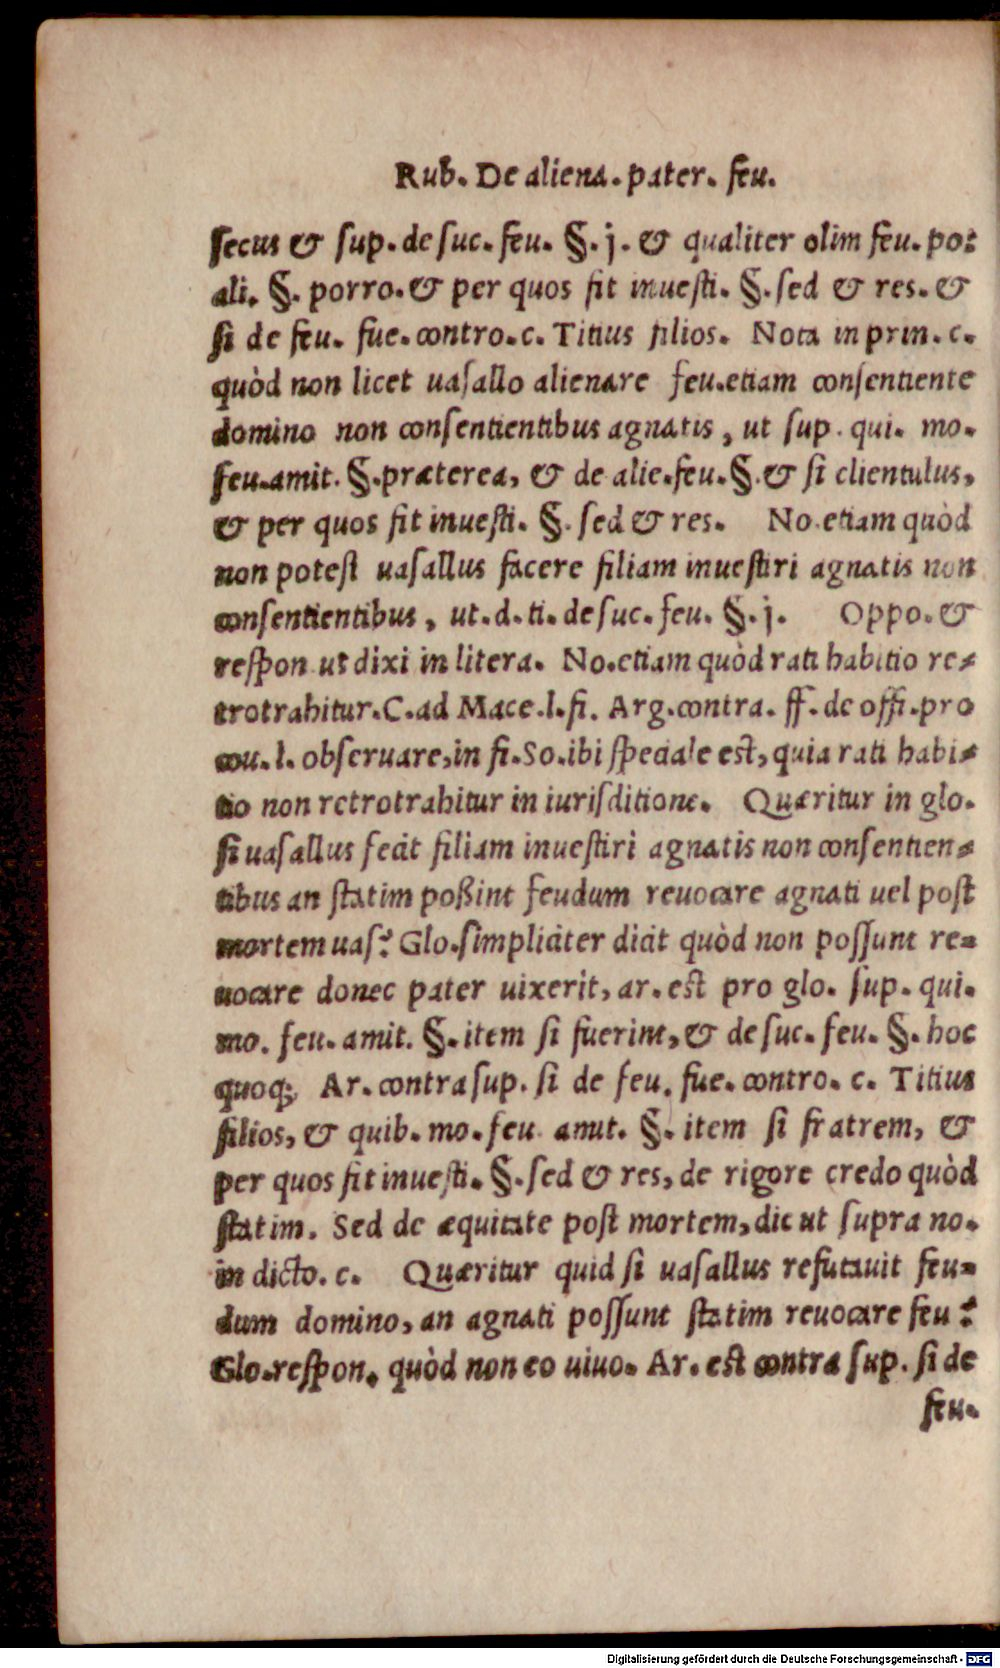 Rub. De aliena. pater. feu.
secus & sup. de suc. feu. §. j. & qualiter olim feu. pot
ali. §. porro. & per quos fit inuesti. §. sed & res. &
si de feu. fue. contro. c. Titius filios. Nota in prin. c.
quòd non licet uasallo alienare feu. etiam consentiente
domino non consentientibus agnatis, ut sup. qui. mo.
feu. amit. §. præterea, & de alie. feu. §. & si clientulus,
& per quos fit inuesti. §. sed & res. No. etiam quòd
non potest uasallus facere filiam inuestiri agnatis non
consentientibus, ut. d. ti. de suc. feu. §. j. Oppo. &
respon ut dixi in litera. No. etiam quòd rati habitio re-
trotrahitur. C. ad Mace. l. fi. Arg. contra. ff. de offi. pro
cou. l. obseruare, in fi. So. ibi speciale est, quia rati habi-
tio non retrotrahitur in iurisditione. Quæritur in glo.
si uasallus fecit filiam inuestiri agnatis non consentien-
tibus an statim poßint feudum reuocare agnati uel post
mortem uas? Glo. simpliciter dicit quòd non possunt re-
uocare donec pater uixerit, ar. est pro glo. sup. qui.
mo. feu. amit. §. item si fuerint, & de suc. feu. §. hoc
quoq; Ar. contra sup. si de feu. fue. contro. c. Titius
filios, & quib. mo. feu amit. §. item si fratrem, &
per quos fit inuesti. §. sed & res, de rigore credo quòd
statim. Sed de æquitate post mortem, dic ut supra no.
in dicto. c. Quæritur quid si uasallus refutauit feu-
dum domino, an agnati possunt statim reuocare feu?
Glo. respon. quòd non eo uiuo. Ar. est contra sup. si de
feu.
Digitalisierung gefördert durch die Deutsche Forschungsgemeinschaft - DFG